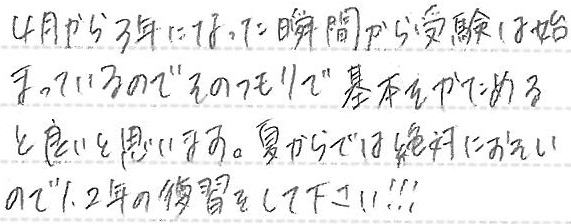 4月から3年になった瞬間から受験は始
まっているのでそのつもりで基本をかためる
と良いと思います。夏からでは絶対におそい
ので1.2年の復習をして下さい!!!